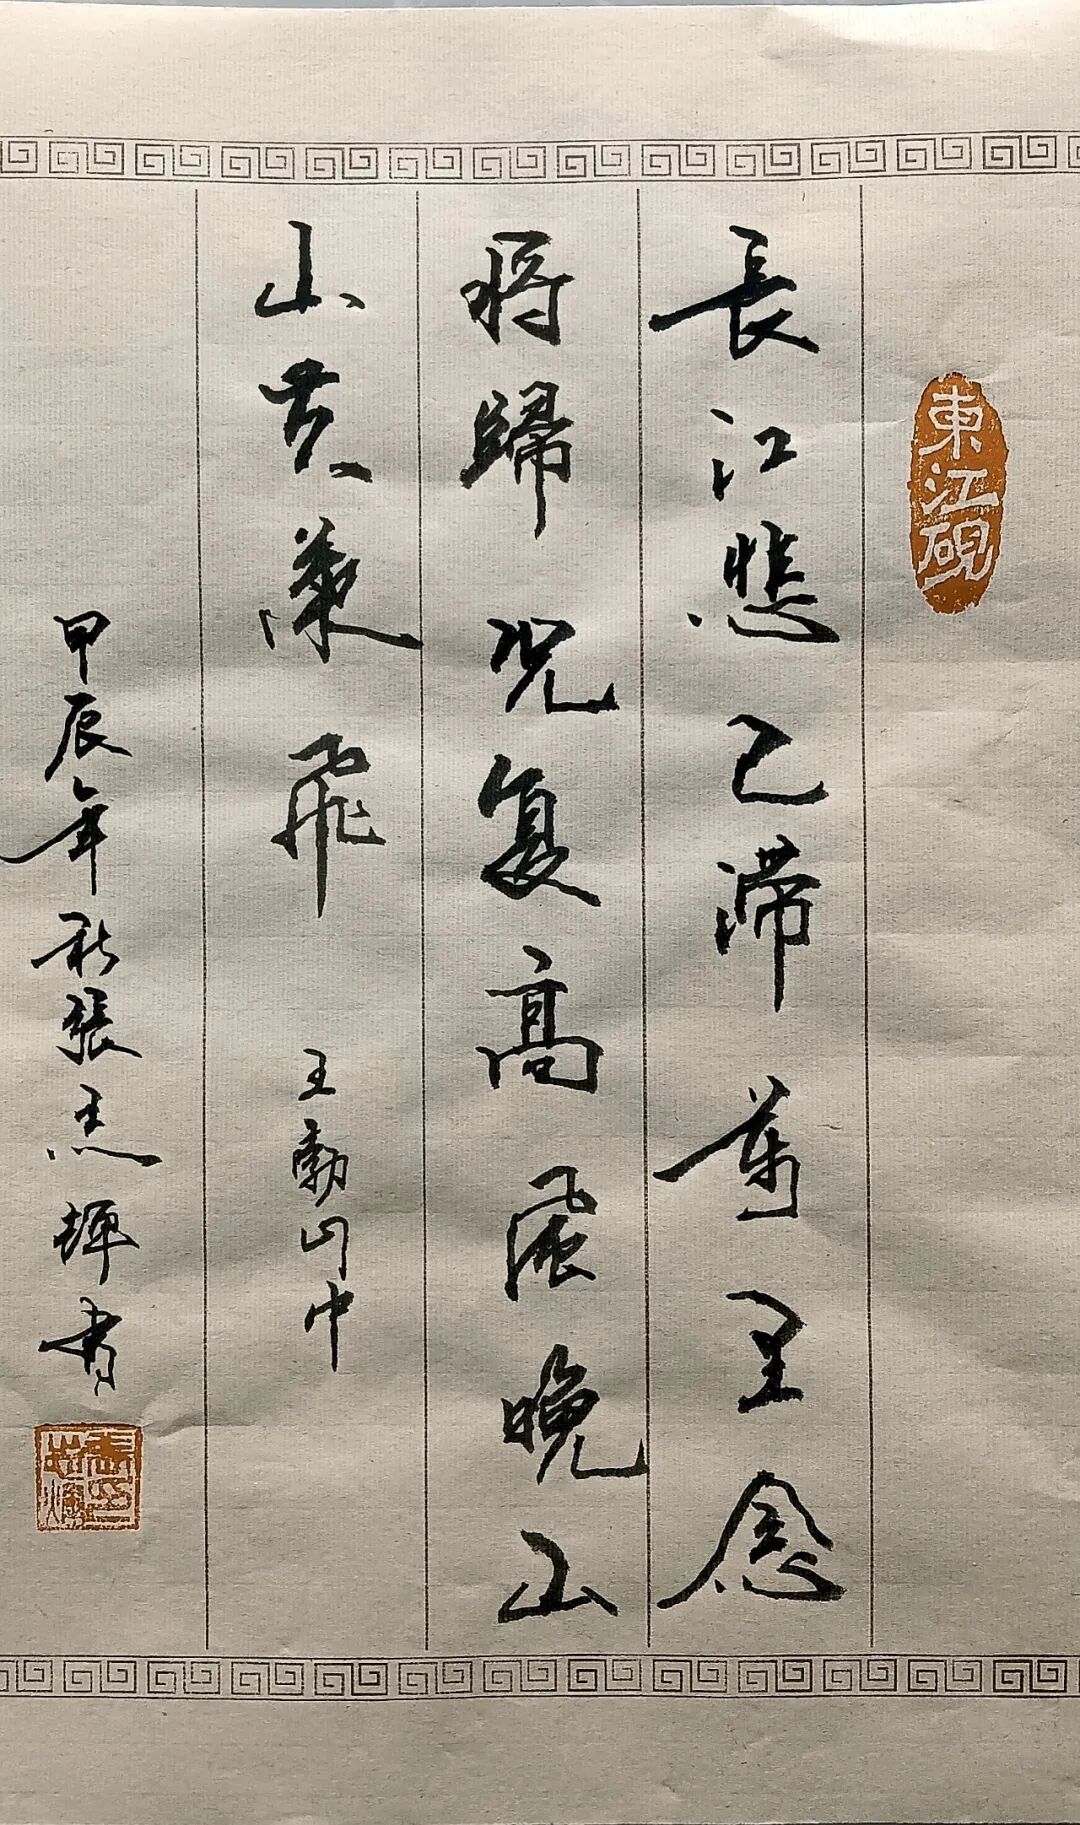 東江硯
長江悲已滞萬里念
将歸况复高風晚山
山黄葉飛
王勃山中
甲辰年秋張志輝書